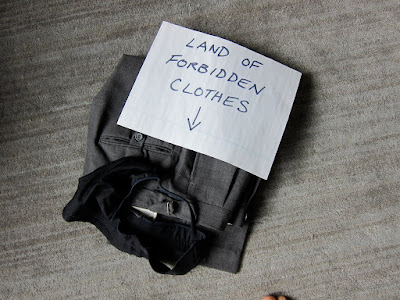 LAND OF
FORBIDDEN
CLOTHES